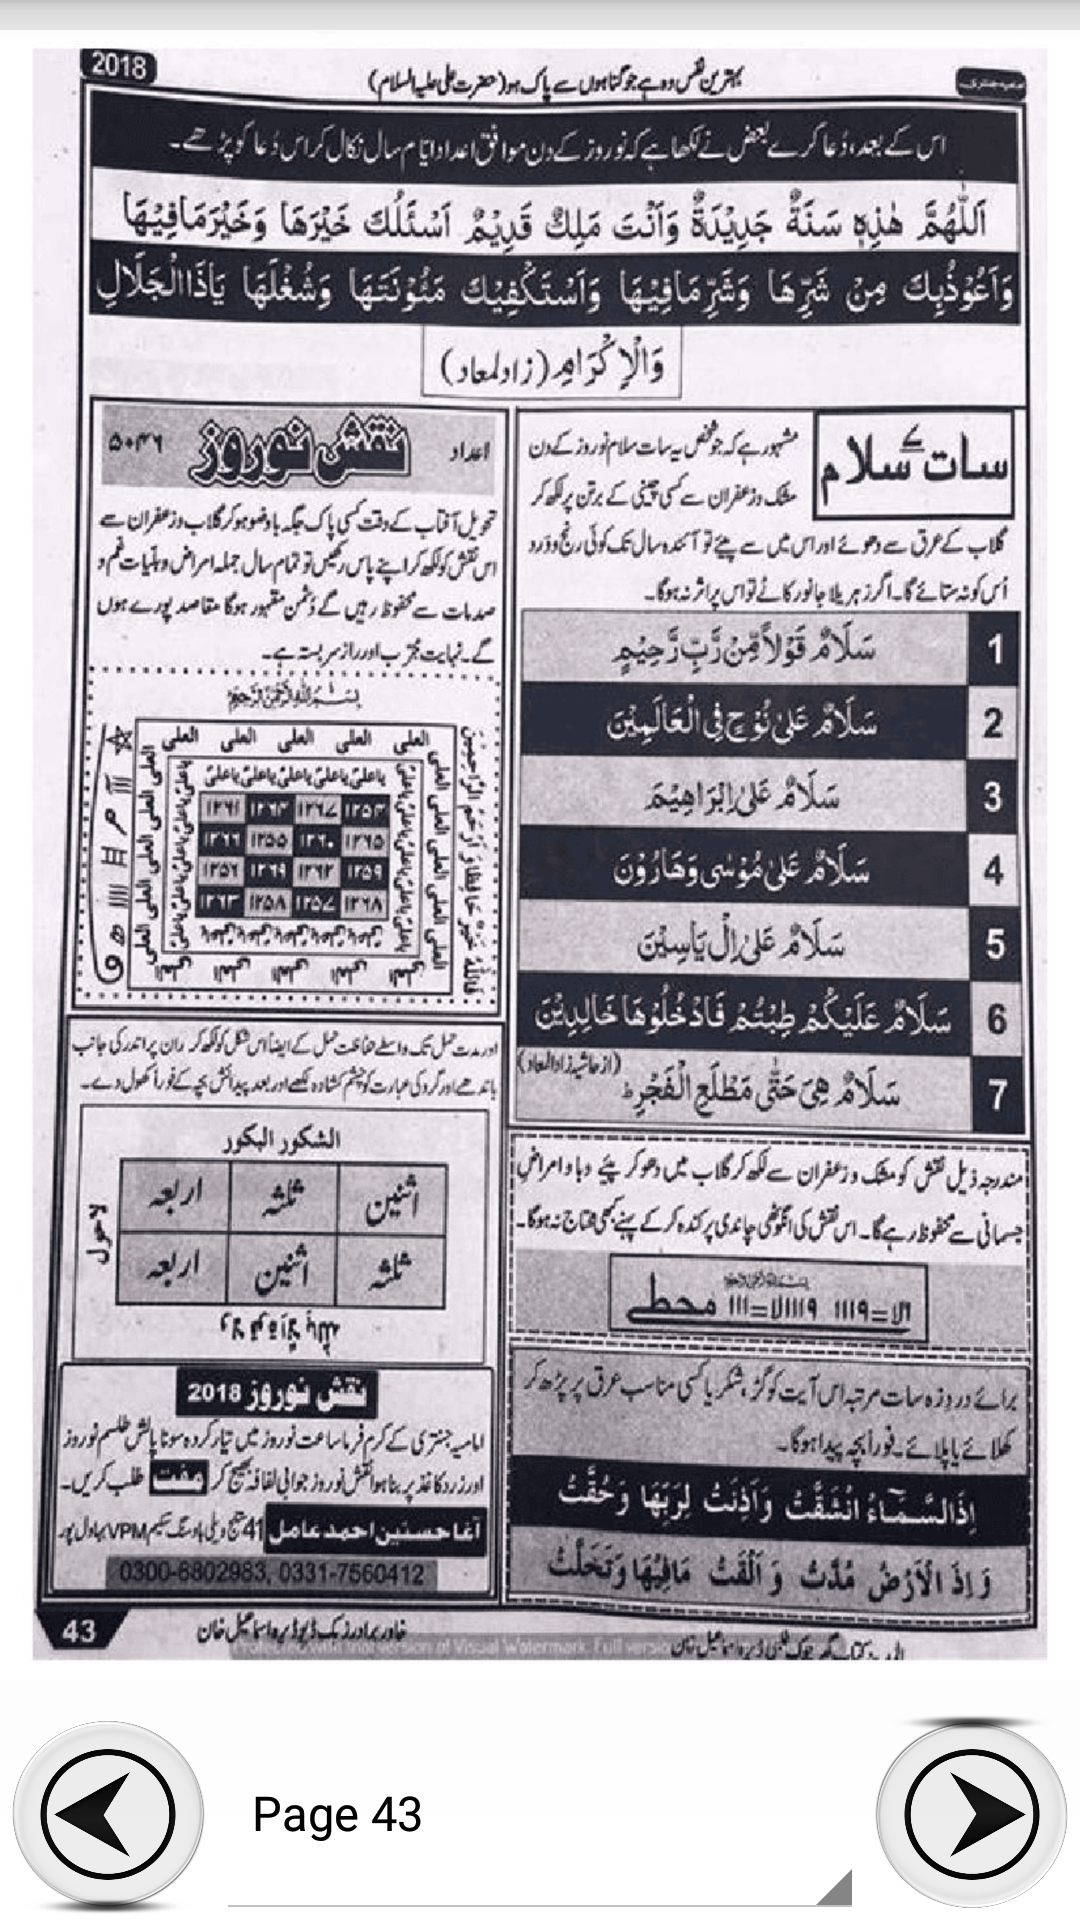 2018
بہترین نفس وہ ہے جو گناہوں سے پاک ہو (حضرت علی علیہ السلام)
اس کے بعد، دُعا کرے بعض نے لکھا ہے کہ نوروز کے دن موافق اعداد ایام سال نکال کر اس دُعا کو پڑھے۔
اَللّٰهُمَّ هٰذِهٖ سَنَةٌ جَدِيْدَةٌ وَاَنْتَ مَلِكٌ قَدِيْمٌ اَسْئَلُكَ خَيْرَهَا وَخَيْرَمَافِيْهَا
وَاَعُوْذُبِكَ مِنْ شَرِّهَا وَشَرِّمَافِيْهَا وَاَسْتَكْفِيْكَ مَئُوْنَتَهَا وَشُغْلَهَا يَاذَاالْجَلَالِ
وَالْاِكْرَامِ (زادلمعاد)
سات کے سلام
مشہور ہے کہ جو شخص یہ سات سلام نوروز کے دن
مشک و زعفران سے کسی چینی کے برتن پر لکھ کر
گلاب کے عرق سے دھوئے اور اس میں سے پیئے تو آئندہ سال تک کوئی رنج و درد
اُس کو نہ ستائے گا۔ اگر زہریلا جانور کاٹے تو اس پر اثر نہ ہوگا۔
1 سَلَامٌ قَوْلاً مِّنْ رَّبِّ رَّحِيْمٍ
2 سَلَامٌ عَلٰى نُوْحٍ فِى الْعَالَمِيْنَ
3 سَلَامٌ عَلٰى اِبْرَاهِيْمَ
4 سَلَامٌ عَلٰى مُوْسٰى وَهَارُوْنَ
5 سَلَامٌ عَلٰى اِلْ يَاسِيْنَ
6 سَلَامٌ عَلَيْكُمْ طِبْتُمْ فَادْخُلُوْهَا خَالِدِيْنَ
7 سَلَامٌ هِىَ حَتّٰى مَطْلَعِ الْفَجْرِ
(از حاشیہ زادالمعاد)
مندرجہ ذیل نقش کو مشک و زعفران سے لکھ کر گلاب میں دھو کر پئے وباو امراض
جسمانی سے محفوظ رہے گا۔ اس نقش کی انگوٹھی چاندی پر کندہ کر کے پہنے کبھی محتاج نہ ہوگا۔
برائے دردِزہ سات مرتبہ اس آیت کو گڑ، شکر یا کسی مناسب عرق پر پڑھ کر
کھلائے یا پلائے۔ فوراً بچہ پیدا ہوگا۔
اِذَالسَّمَآءُ انْشَقَّتْ وَاَذِنَتْ لِرَبِّهَا وَحُقَّتْ
وَ اِذَ الْاَرْضُ مُدَّتْ وَ اَلْقَتْ مَافِيْهَا وَتَخَلَّتْ
اعداد نقش نوروز ۵۰۴۶
تحویل آفتاب کے وقت کسی پاک جگہ باوضو ہو کر گلاب و زعفران سے
اس نقش کو لکھ کر اپنے پاس رکھیں تو تمام سال جملہ امراض و بلیات غم و
صدمات سے محفوظ رہیں گے دُشمن مقہور ہوگا مقاصد پورے ہوں
گے۔ نہایت مجرّب اور راز سربستہ ہے۔
بسم الله الرحمن الرحيم
العلی العلی العلی العلی العلی
یاعلیُ یاعلیُ یاعلیُ یاعلیُ یاعلیُ
۱۲۶۱ ۱۲۶۴ ۱۲۶۷ ۱۲۵۴
۱۲۶۶ ۱۲۵۵ ۱۲۶۰ ۱۲۶۵
۱۲۵۶ ۱۲۶۹ ۱۲۶۲ ۱۲۵۹
۱۲۶۳ ۱۲۵۸ ۱۲۵۷ ۱۲۶۸
فَاللّٰهُ خَيْرٌ حَافِظًا وَّ اَرْحَمُ الرَّاحِمِيْنَ
اور مدت حمل تک واسطے حفاظت حمل کے ایضاً اس شکل کو لکھ کر ران پر اندر کی جانب
باندھے اور گرد کی عبارت کو چشم کشادہ لکھے اور بعد پیدائش بچہ کے فوراً کھول دے۔
الشکور البکور
اثنین ثلثه اربعه
ثلثه اثنین اربعه
لاحول
ولا قوة الا بالله
نقش نوروز 2018
امامیہ جنتری کے کرم فرما ساعت نوروز میں تیار کردہ سونا پالش طلسم نوروز
اور زرد کاغذ پر بنا ہوا نقش نوروز جوابی لفافہ بھیج کر مفت طلب کریں۔
آغا حسنین احمد عامل 41 ستلج ویلی ہاوسنگ سکیم VPM بہاول پور
0300-6802983, 0331-7560412
43
خاور برادرز بک ڈپو ڈیرہ اسماعیل خان
Protected with trial version of Visual Watermark. Full version
Page 43